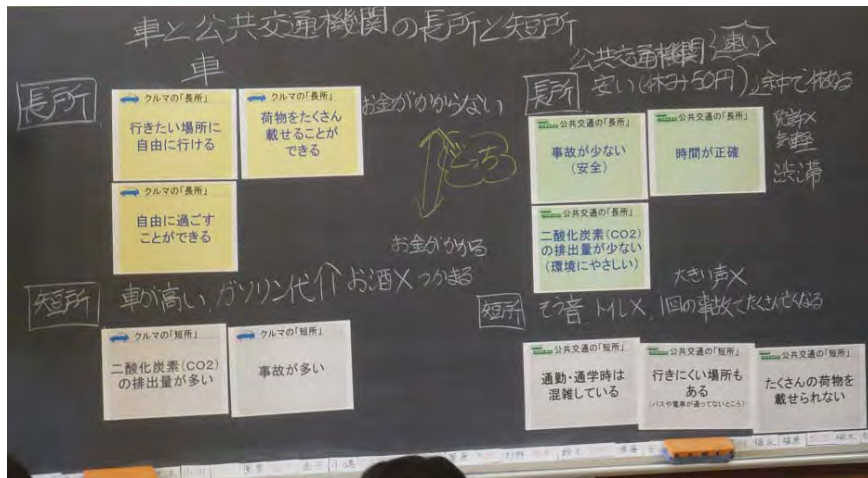 車と公共交通機関の長所と短所
車
長所
クルマの「長所」
行きたい場所に
自由に行ける
クルマの「長所」
荷物をたくさん
載せることが
できる
お金がかからない
クルマの「長所」
自由に過ごす
ことができる
どっち
お金がかかる
短所
車が高い、ガソリン代
お酒×つかまる
クルマの「短所」
二酸化炭素(CO2)
の排出量が多い
クルマの「短所」
事故が多い
公共交通機関
速い
長所
安い(休み50円)
公共交通の「長所」
事故が少ない
(安全)
公共交通の「長所」
時間が正確
気軽
渋滞
公共交通の「長所」
二酸化炭素(CO2)
の排出量が少ない
(環境にやさしい)
大きい声×
短所
そう音、トイレ×、1回の事故でたくさん亡くなる
公共交通の「短所」
通勤・通学時は
混雑している
公共交通の「短所」
行きにくい場所も
ある
(バスや電車が通ってないところ)
公共交通の「短所」
たくさんの荷物を
載せられない